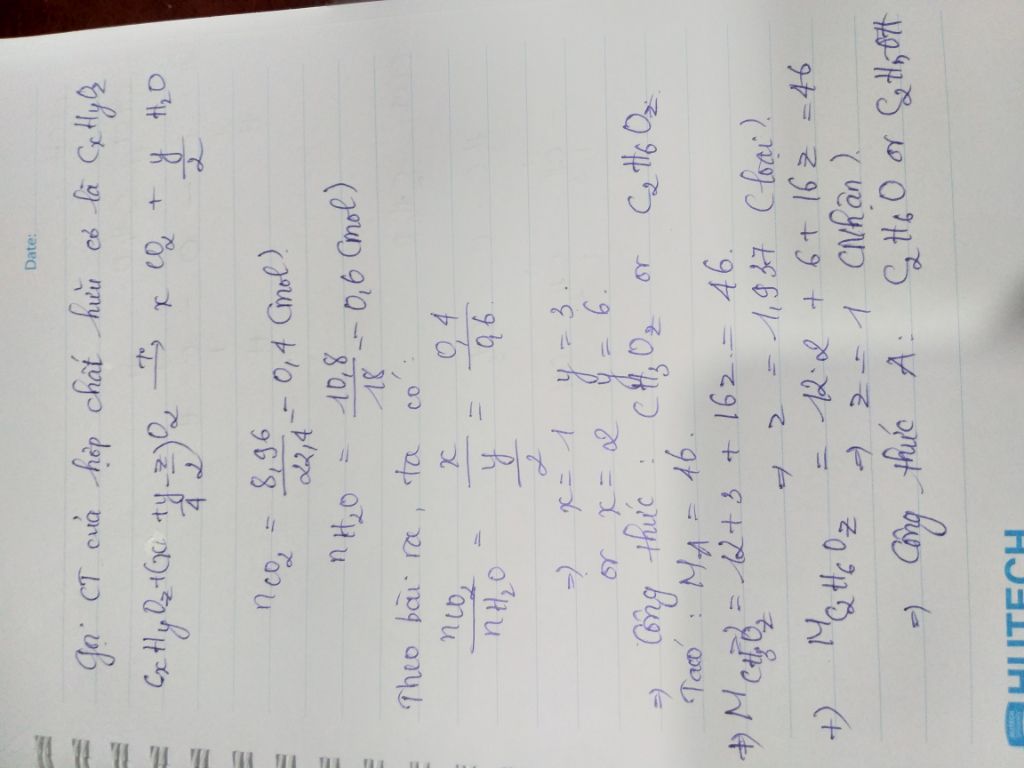 Date:
Gọi CT của hợp chất hữu cơ là CxHyOz
CxHyOz + (x + y/4 - z/2) O2 --T°--> x CO2 + y/2 H2O
nCO2 = 8,96/22,4 = 0,4 (mol).
nH2O = 10,8/18 = 0,6 (mol)
Theo bài ra, ta có:
nCO2/nH2O = x/(y/2) = 0,4/0,6.
=> x = 1 y = 3.
or x = 2 y = 6.
=> Công thức: CH3Oz or C2H6Oz
Ta có: MA = 46.
+) MCH3Oz = 12 + 3 + 16z = 46.
=> z = 1,937 (loại).
+) MC2H6Oz = 12.2 + 6 + 16z = 46
=> z = 1 (Nhận).
=> Công thức A: C2H6O or C2H5OH
HUTECH